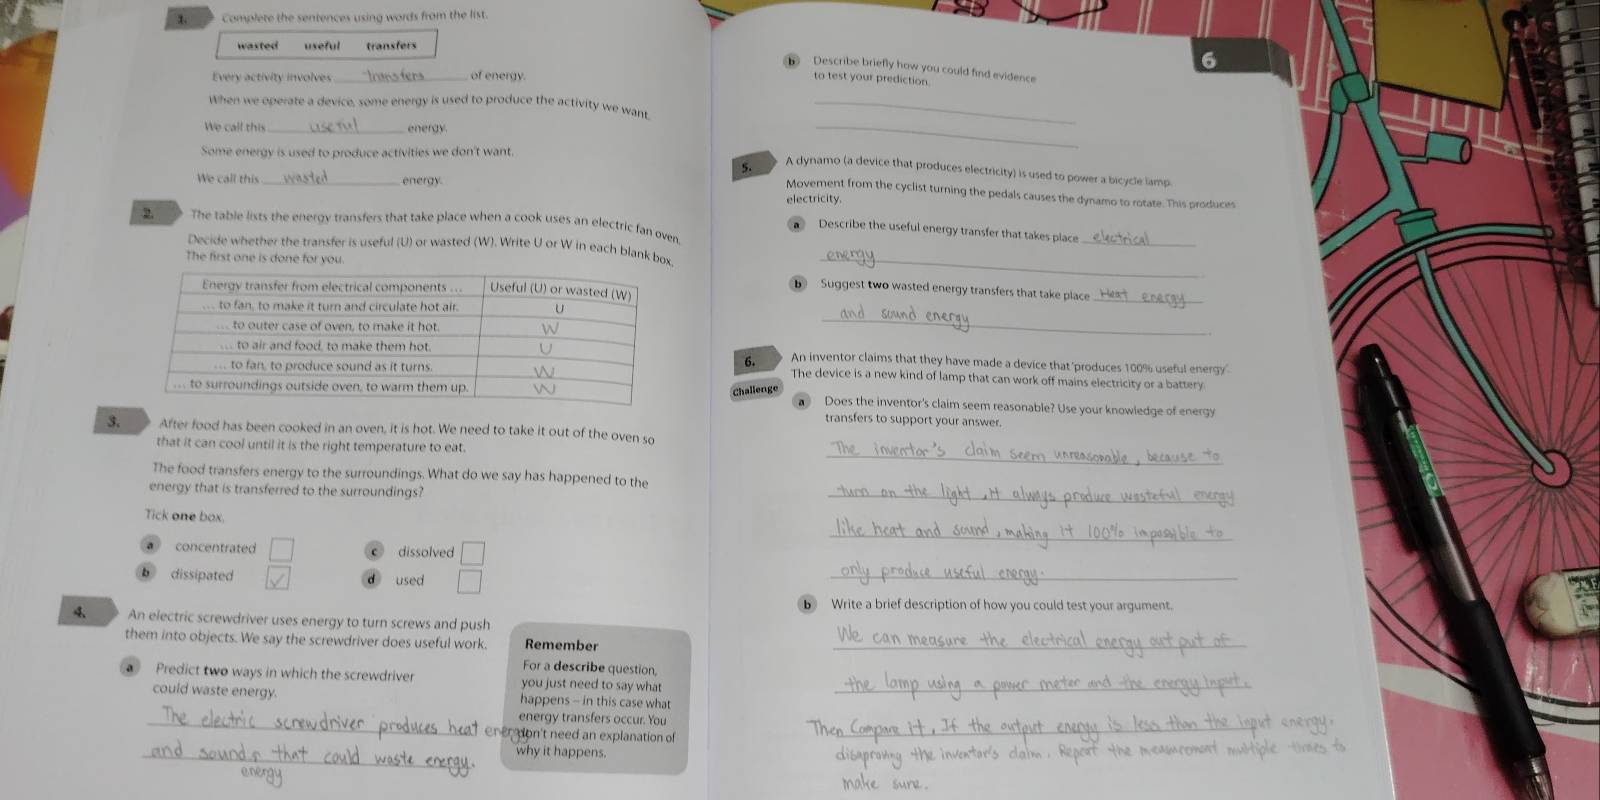 1. Complete the sentences using words from the list.
wasted useful transfers
Every activity involves transfers of energy.
When we operate a device, some energy is used to produce the activity we want.
We call this useful energy.
Some energy is used to produce activities we don't want.
We call this wasted energy.
2. The table lists the energy transfers that take place when a cook uses an electric fan oven.
Decide whether the transfer is useful (U) or wasted (W). Write U or W in each blank box.
The first one is done for you.
Energy transfer from electrical components ... Useful (U) or wasted (W)
... to fan, to make it turn and circulate hot air. U
... to outer case of oven, to make it hot. W
... to air and food, to make them hot. U
... to fan, to produce sound as it turns. W
... to surroundings outside oven, to warm them up. W
3. After food has been cooked in an oven, it is hot. We need to take it out of the oven so
that it can cool until it is the right temperature to eat.
The food transfers energy to the surroundings. What do we say has happened to the
energy that is transferred to the surroundings?
Tick one box.
a concentrated
c dissolved
b dissipated ✓
d used
4. An electric screwdriver uses energy to turn screws and push
them into objects. We say the screwdriver does useful work.
a Predict two ways in which the screwdriver
could waste energy.
The electric screwdriver produces heat energy
and sounds that could waste energy.
energy
Remember
For a describe question,
you just need to say what
happens – in this case what
energy transfers occur. You
don't need an explanation of
why it happens.
6
b Describe briefly how you could find evidence
to test your prediction.
5. A dynamo (a device that produces electricity) is used to power a bicycle lamp.
Movement from the cyclist turning the pedals causes the dynamo to rotate. This produces
electricity.
a Describe the useful energy transfer that takes place electrical
energy
b Suggest two wasted energy transfers that take place Heat energy
and sound energy
6. An inventor claims that they have made a device that 'produces 100% useful energy'.
The device is a new kind of lamp that can work off mains electricity or a battery.
Challenge
a Does the inventor's claim seem reasonable? Use your knowledge of energy
transfers to support your answer.
The inventor's claim seem unreasonable, because to
turn on the light, it always produce wasteful energy
like heat and sound, making it 100% impossible to
only produce useful energy.
b Write a brief description of how you could test your argument.
We can measure the electrical energy out put of
the lamp using a power meter and the energy input.
Then Compare it. If the output energy is less than the input energy.
disaproving the inventor's claim. Repeat the measurement multiple times to
make sure.